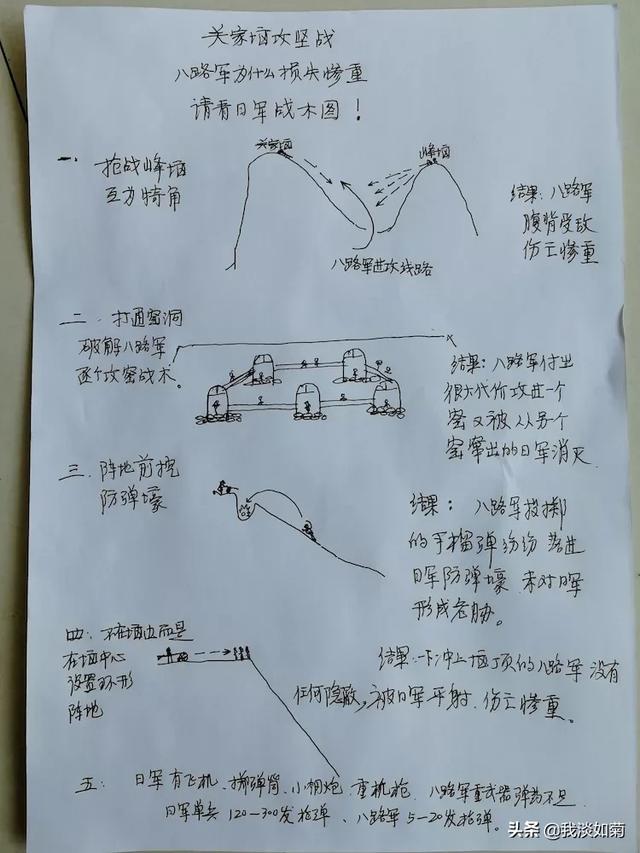 关家垴攻坚战
八路军为什么损失惨重
请看日军战术图！
一、抢战峰垴
互为犄角
关家垴
峰垴
八路军进攻线路
结果：八路军
腹背受敌
伤亡惨重
二、打通窑洞
破解八路军
逐个攻窑战术。
结果：八路军付出
很大代价攻进一个
窑又被从另个
窑窜出的日军消灭
三、阵地前挖
防弹壕
结果：八路军投掷
的手榴弹纷纷落进
日军防弹壕、未对日军
形成危胁。
四、不在垴边而是
在垴中心
设置环形
阵地
结果：一下冲上垴顶的八路军没有
任何隐蔽，被日军平射、伤亡惨重。
五：日军有飞机、掷弹筒、小钢炮、重机枪、八路军重武器弹药不足
日军单兵120—300发枪弹、八路军5—20发枪弹。
头条 @我淡如菊